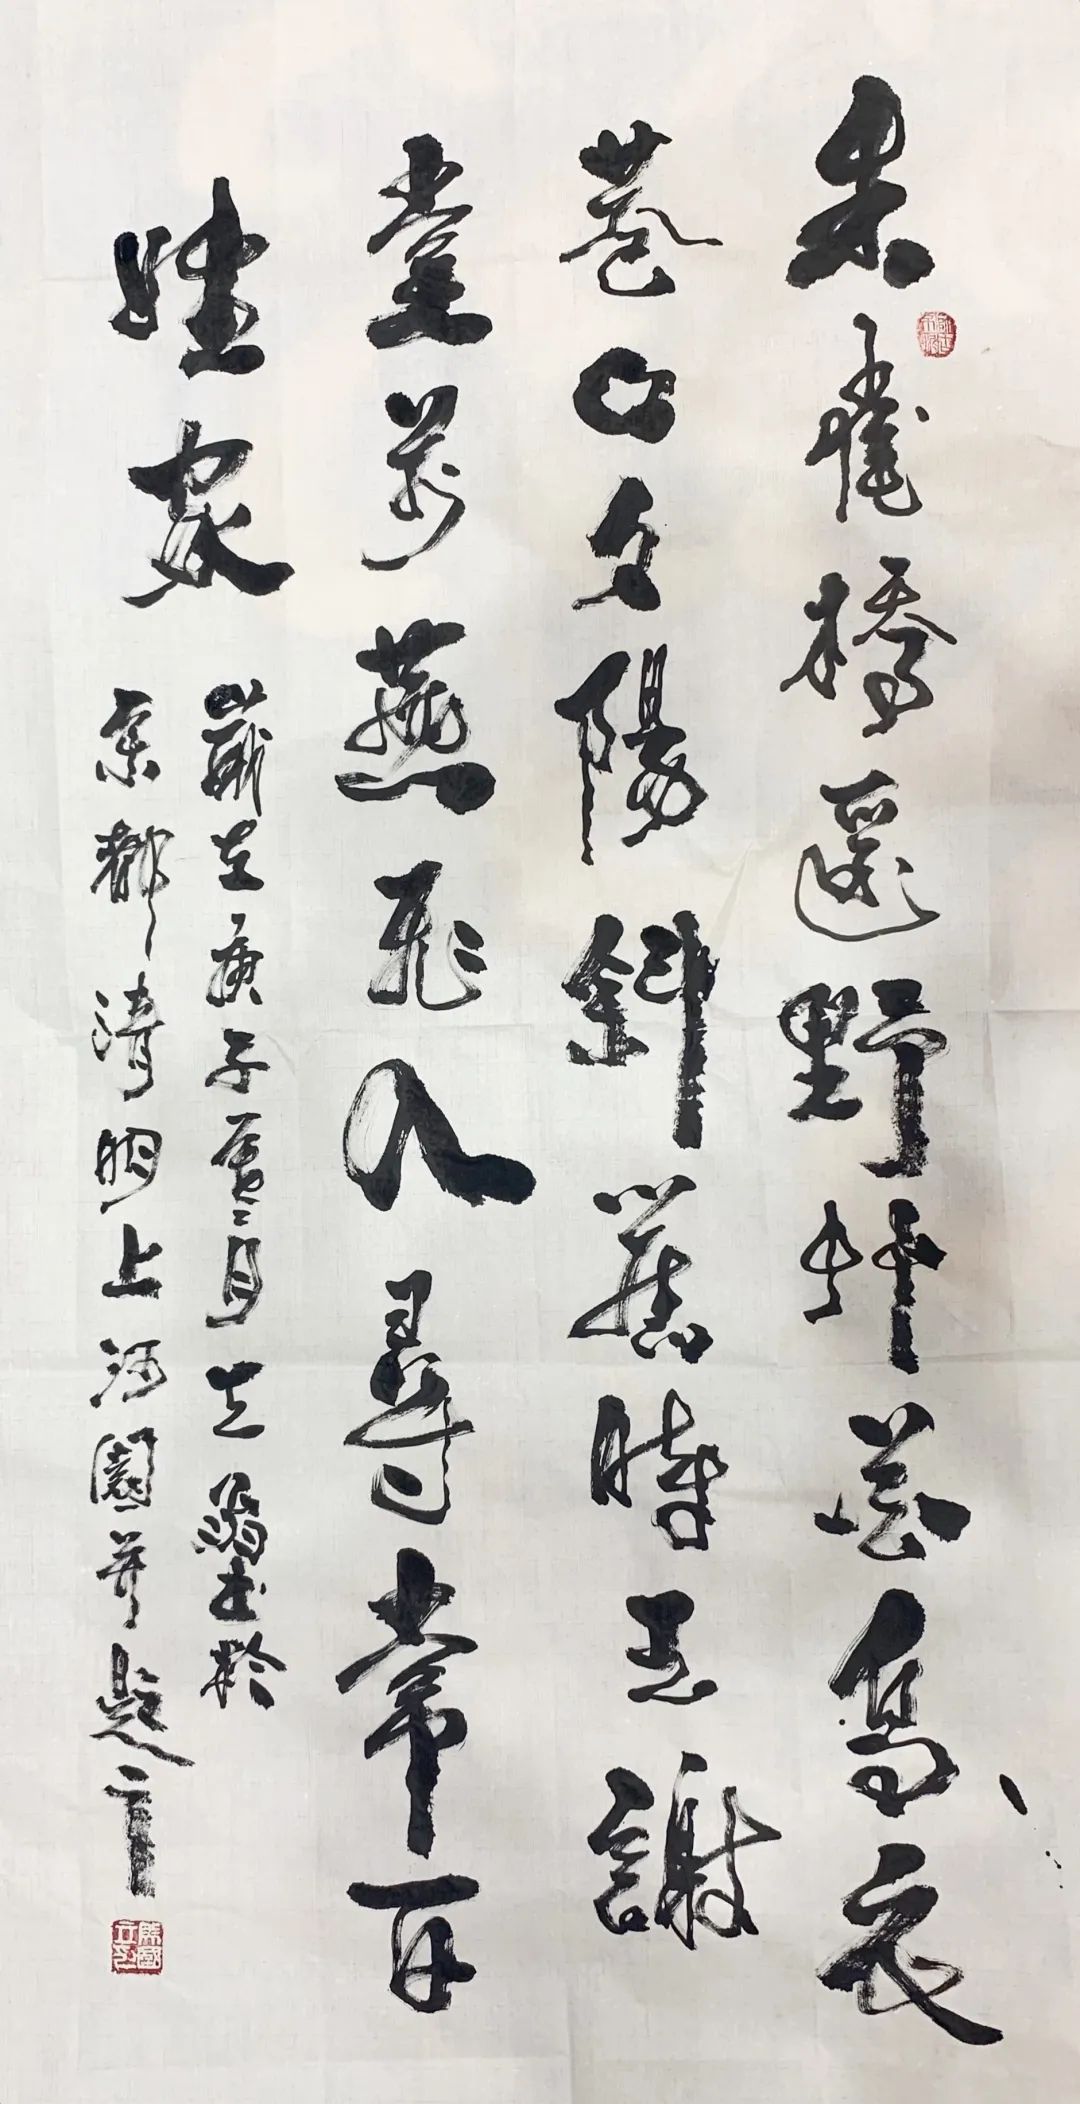 朱雀橋邊野艸花烏衣
巷口夕陽斜舊時王謝
堂前燕飛入尋常百
姓家
歲在庚子夏月書於
都清明上河園并題